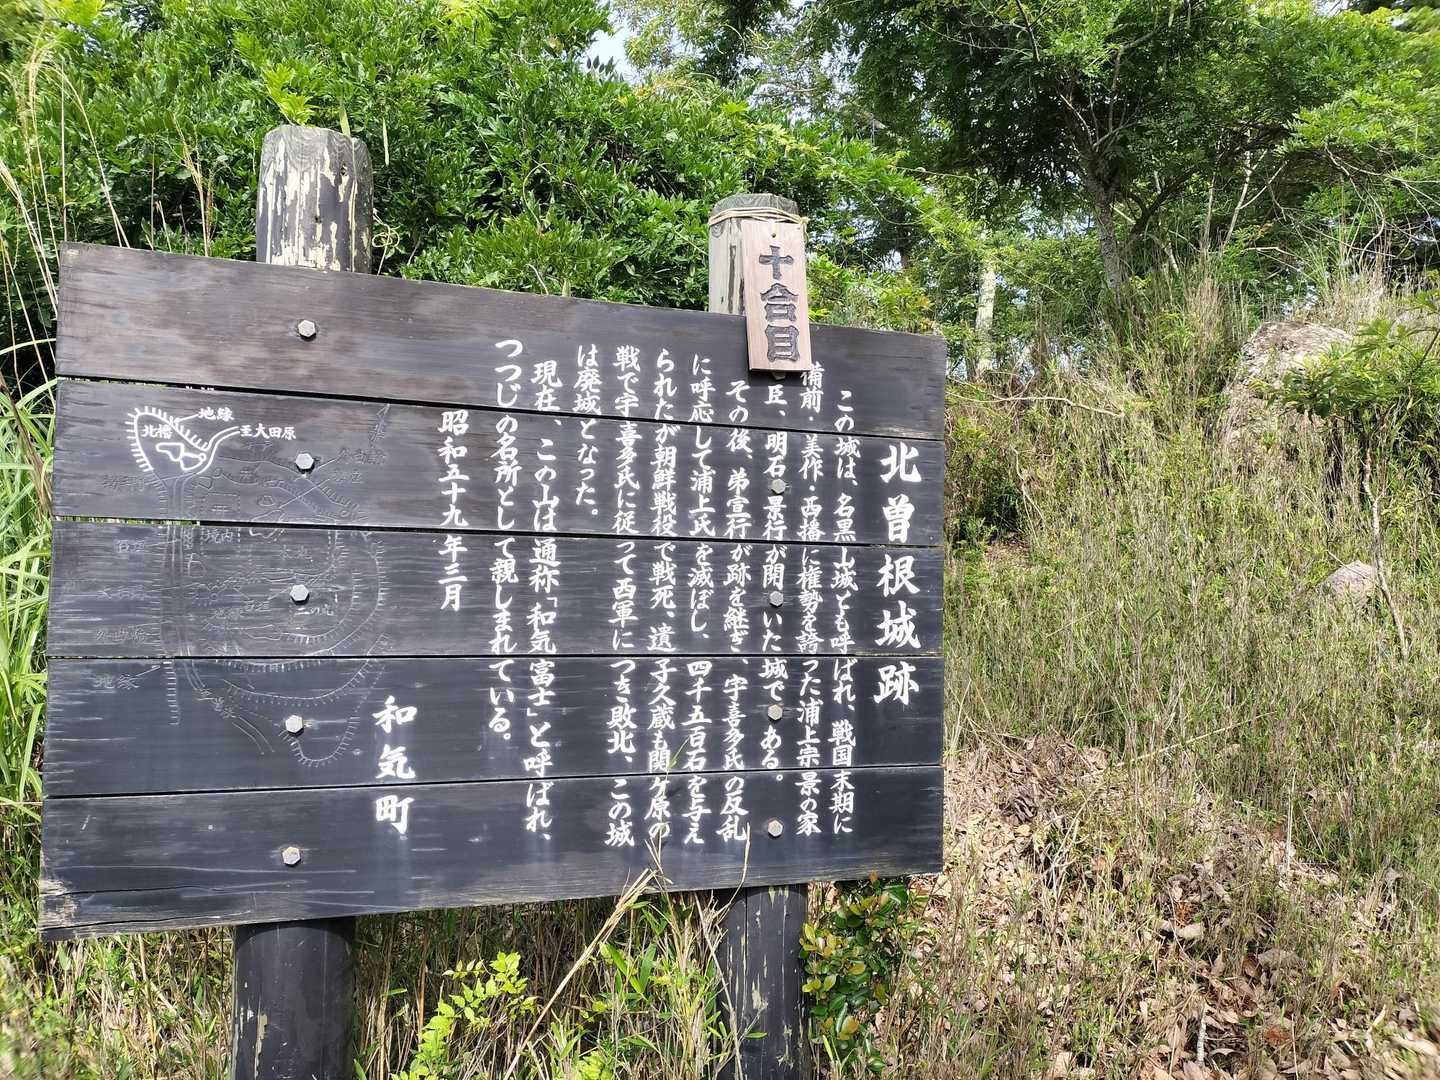 十合目
北曽根城跡
この城は、名黒山城とも呼ばれ、戦国末期に
備前、美作、西播に権勢を誇った浦上宗景の家
臣、明石景行が開いた城である。
その後、弟宣行が跡を継ぎ、宇喜多氏の反乱
に呼応して浦上氏を滅ぼし、四千五百石を与え
られたが朝鮮戦役で戦死、遺子久蔵も関ケ原の
戦で宇喜多氏に従って西軍につき敗北、この城
は廃城となった。
現在、この山は通称「和気富士」と呼ばれ、
つつじの名所として親しまれている。
昭和五十九年三月
和気町
地縁
北櫓
至大田原
境内
二の丸